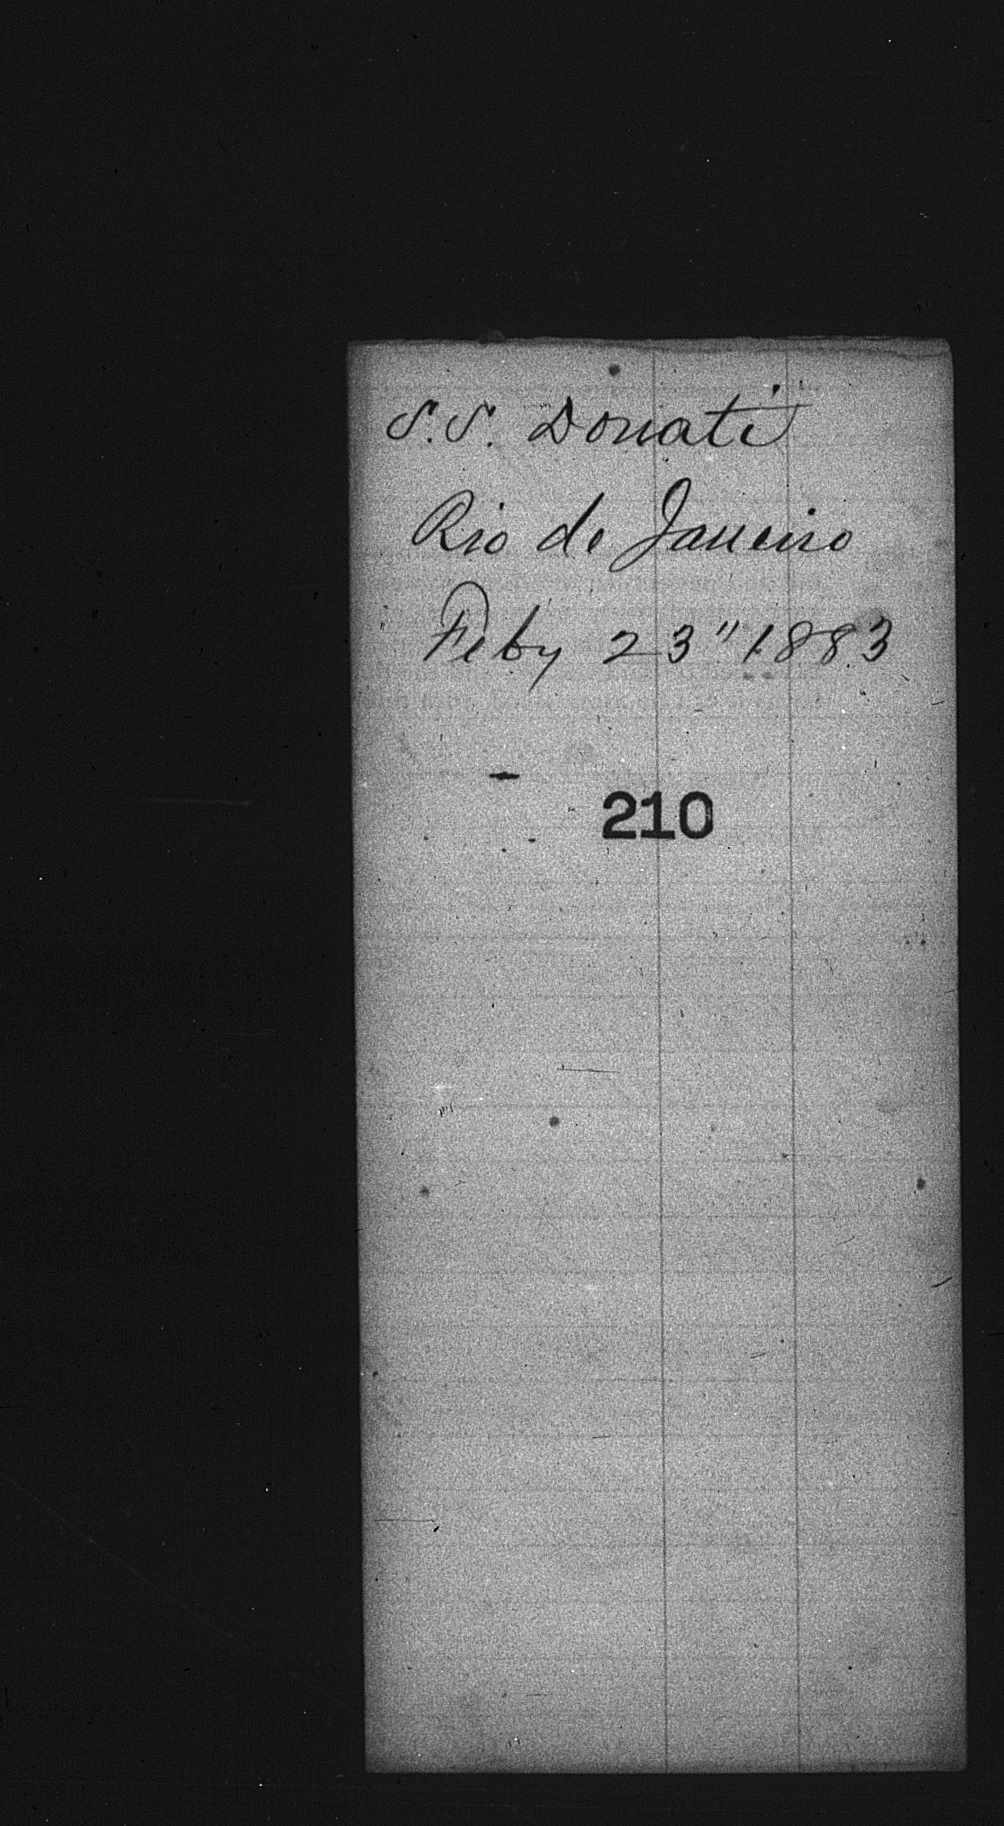 S.S. Donati
Rio de Janeiro
Feby 23" 1883
210